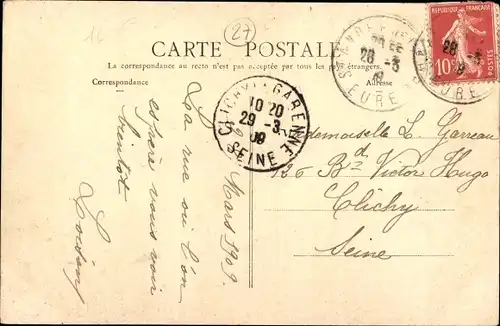 16
27
CARTE POSTALE
La correspondance au recto n'est pas acceptée par tous les pays étrangers.
Correspondance
Adresse
RÉPUBLIQUE FRANÇAISE
10c
POSTES
28 -3
09
EURE
28 -3
9
EURE
CLICHY-LA-GARENNE
10 20
29 -3
09
SEINE
Mars 1909.
La rue où l'on
espère vous voir
bientôt
Mademoiselle L. Garreau
126 Bd Victor Hugo
Clichy
Seine